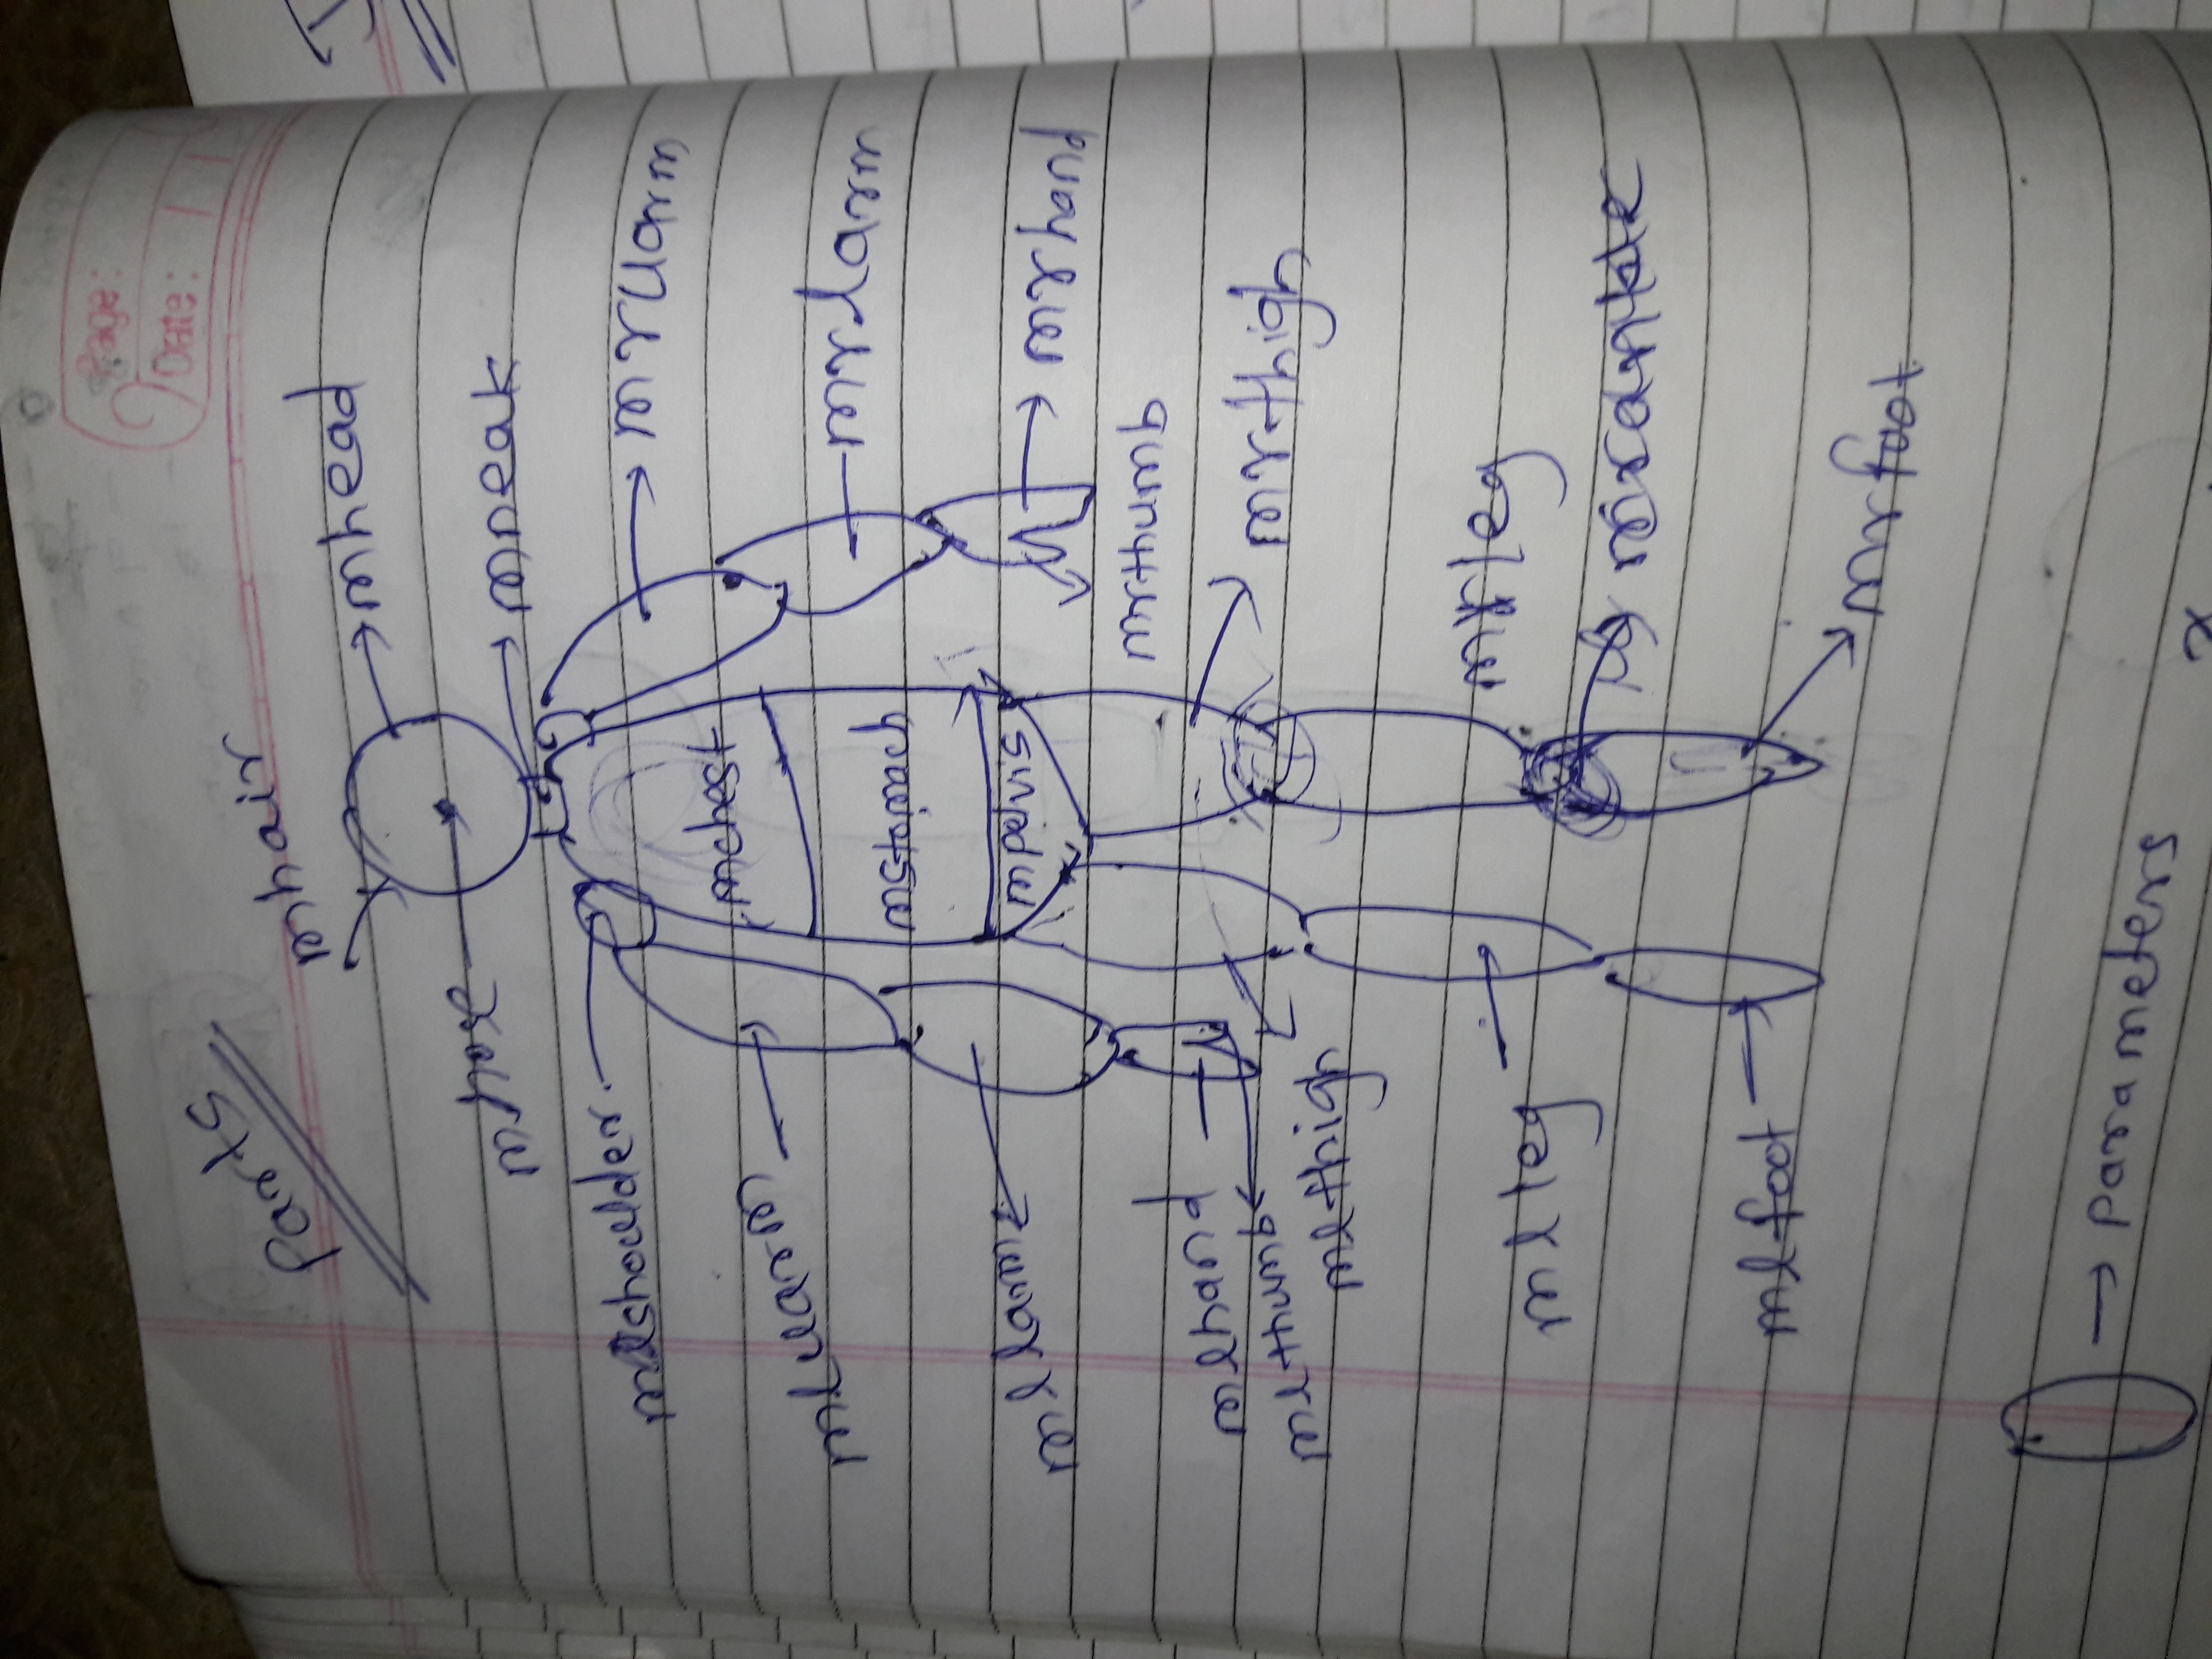 Page:
Date:
Parts
mhair
mhead
mnose
mneak
mlshoulder
mruarm
mchest
mluarm
mrlarm
mstomach
mllarm
mpelvis
mrhand
mrthumb
mlhand
mlthumb
mrthigh
mlthigh
mrleg
mlleg
mlfoot
mrfoot
Parameters
x